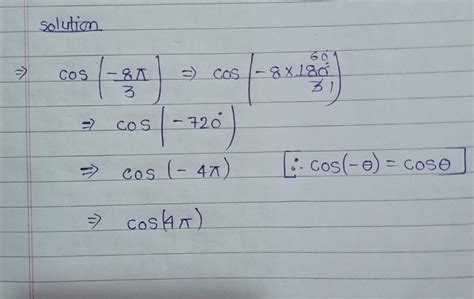 solution
⇒ cos(-8π/3) ⇒ cos(-8×180°/3) 60° 1
⇒ cos(-720°)
⇒ cos(-4π) [∴ cos(-θ) = cosθ]
⇒ cos(4π)